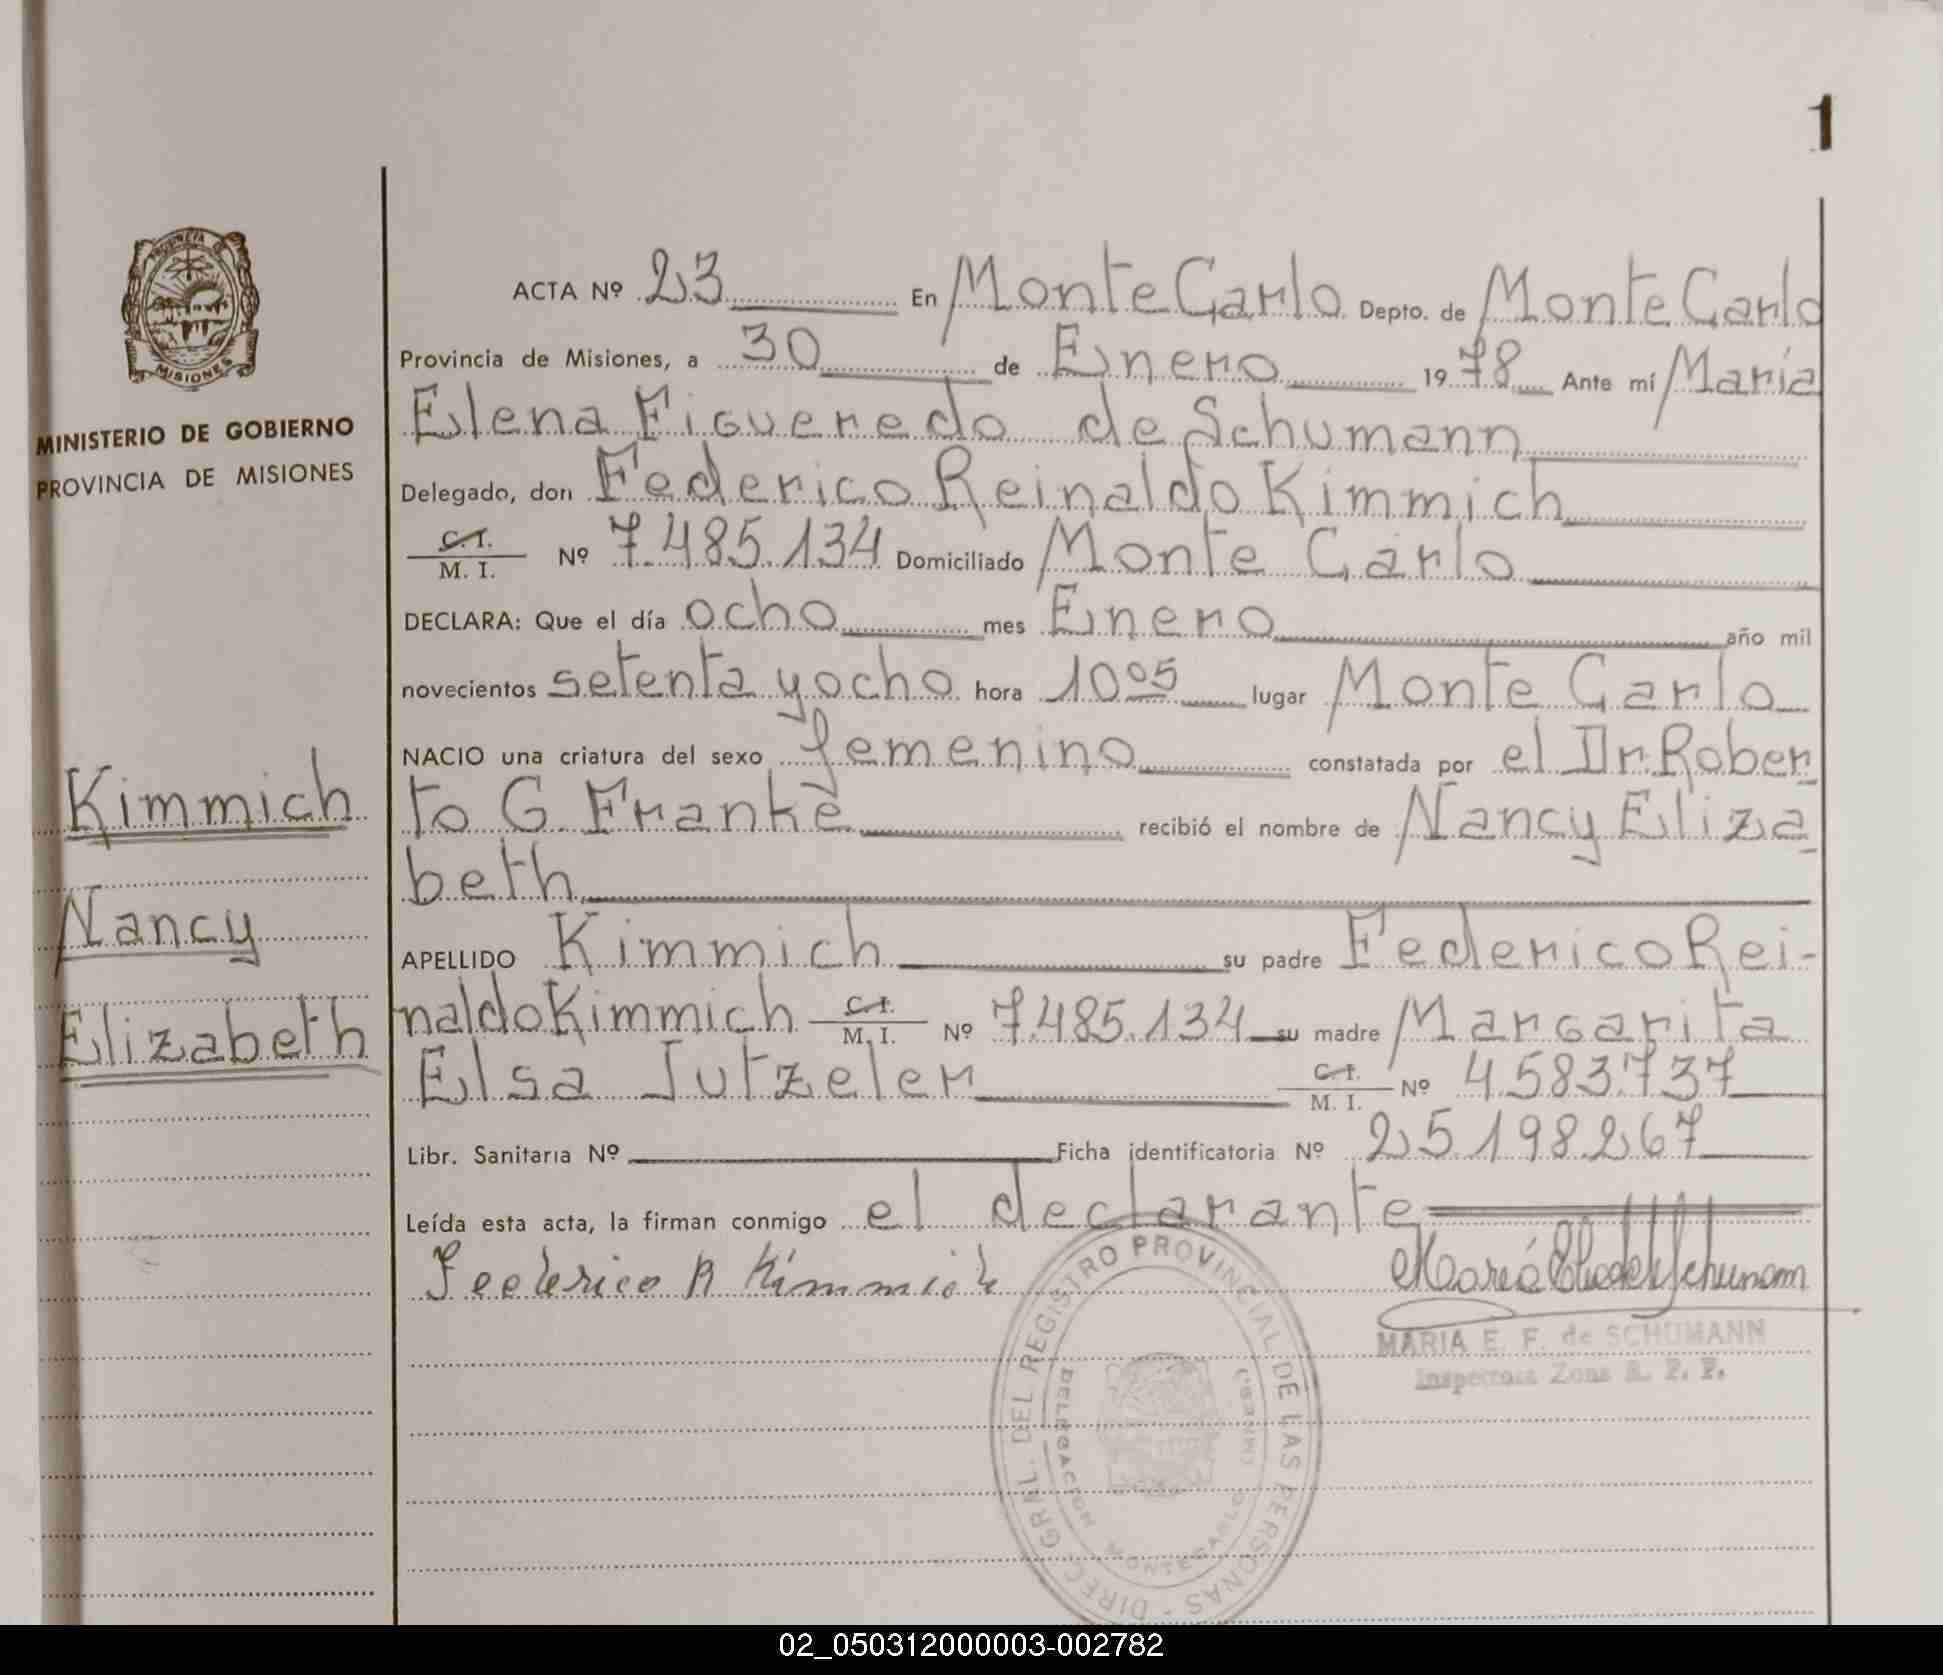 1
PROVINCIA DE
MISIONES
MINISTERIO DE GOBIERNO
PROVINCIA DE MISIONES
Kimmich
Nancy
Elizabeth
ACTA Nº 23 En Monte Carlo Depto. de Monte Carlo
Provincia de Misiones, a 30 de Enero 1978 Ante mí María
Elena Figueredo de Schumann
Delegado, don Federico Reinaldo Kimmich
C.I.
M. I. Nº 7.485.134 Domiciliado Monte Carlo
DECLARA: Que el día ocho mes Enero año mil
novecientos setenta y ocho hora 10 05 lugar Monte Carlo
NACIO una criatura del sexo femenino constatada por el Dr. Rober
to G. Franke recibió el nombre de Nancy Eliza
beth
APELLIDO Kimmich su padre Federico Rei-
naldo Kimmich C.I. M. I. Nº 7.485.134 su madre Margarita
Elsa Jutzeler C.I. M. I. Nº 4.583.737
Libr. Sanitaria Nº Ficha identificatoria Nº 25.198.267
Leída esta acta, la firman conmigo el declarante
Federico R Kimmich
MARIA E. F. de SCHUMANN
Inspectora Zona R. P. P.
DIREC. GRAL. DEL REGISTRO PROVINCIAL DE LAS PERSONAS
DELEGACION MONTECARLO (MISIONES)
02_050312000003-002782